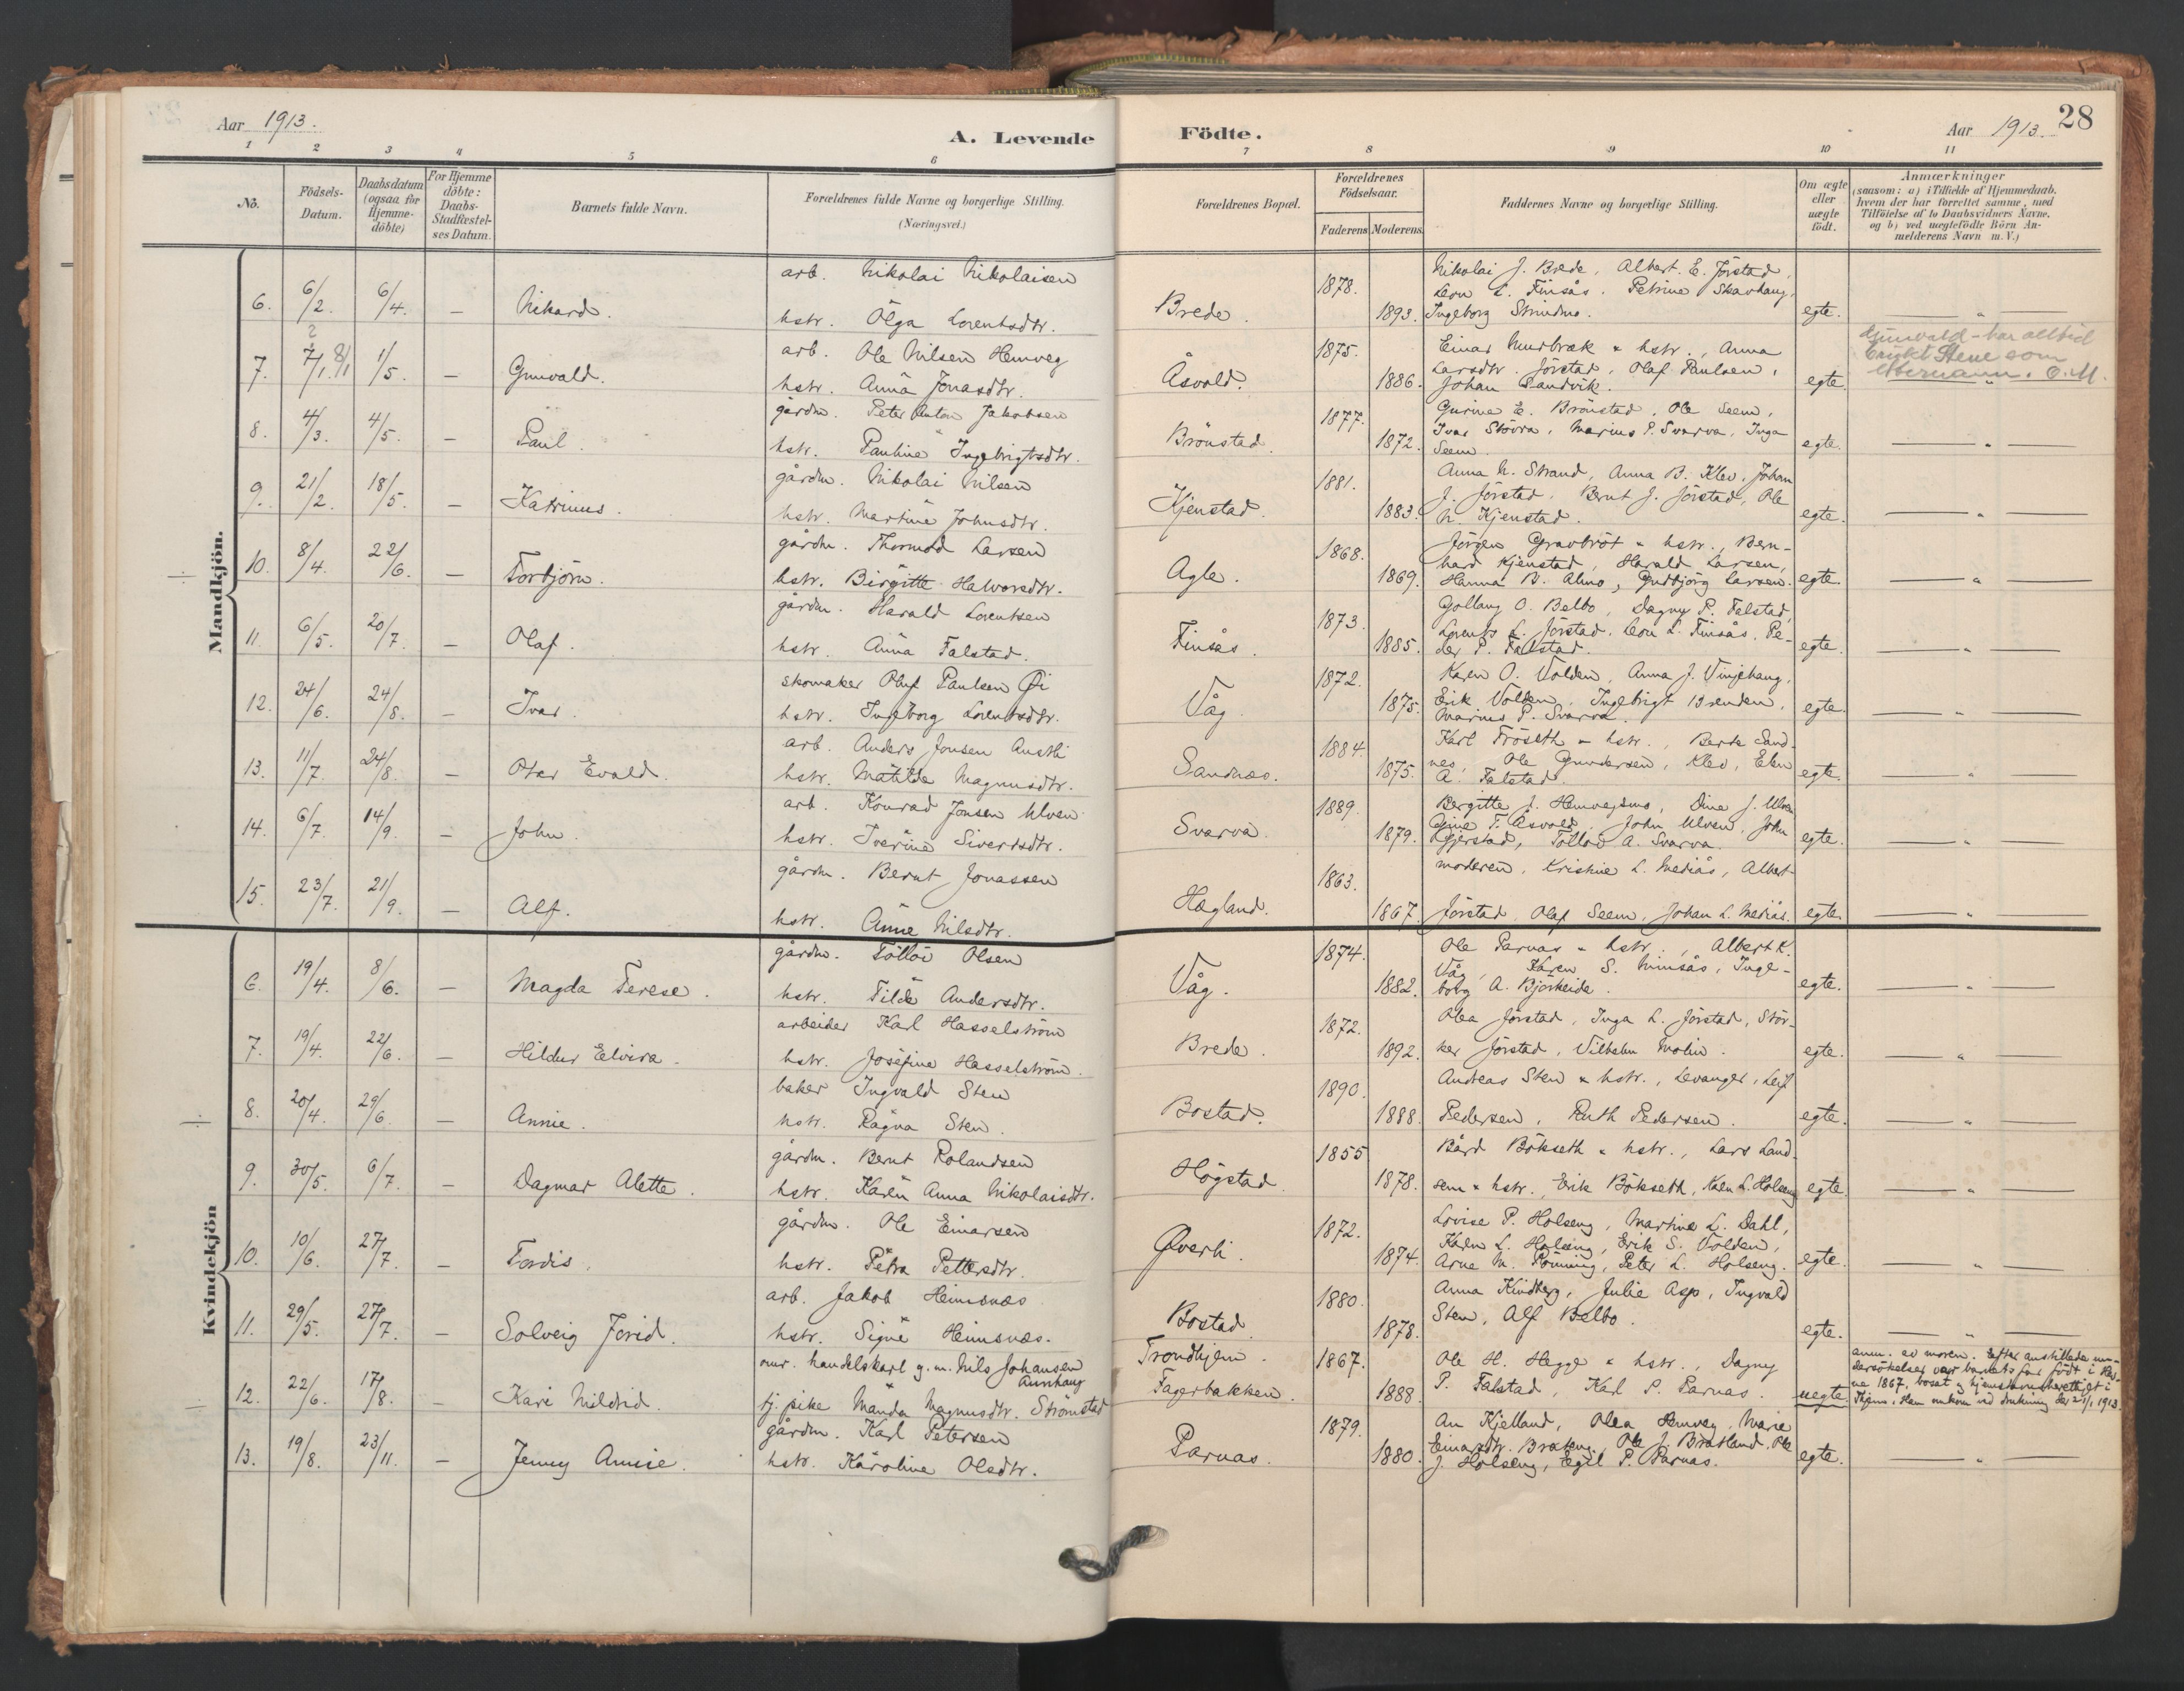 Aar 1913.
A. Levende
Födte.
Aar 1913.
28
1 2 3 4 5 6 7 8 9 10 11
No.
Födsels-
Datum.
Daabsdatum
(ogsaa for
Hjemme-
döbte)
For Hjemme
döbte:
Daabs-
Stadfæstel-
ses Datum.
Barnets fulde Navn.
Forældrenes fulde Navne og borgerlige Stilling.
(Næringsvei.)
Forældrenes Bopæl.
Forældrenes
Födselsaar.
Faderens Moderens
Faddernes Navne og borgerlige Stilling.
Om ægte
eller
uægte
födt.
Anmærkninger
(saasom: a) i Tilfælde af Hjemmedaab,
hvem der har forrettet samme, med
Tilföielse af to Daabsvidners Navne,
og b) ved uægtefödte Börn An-
melderens Navn m. V.)
Mandkjön.
6. 6/2. 6/4. — Nikard.
arb. Nikolai Nikolaisen
hstr. Olga Lorentsdtr.
Brede. 1878. 1893.
Nikolai J. Brede, Albert E. Jörstad,
Leon L. Finsås, Petrine Skavhaug,
Ingeborg Strindmo.
egte. — " —
7. 7/1. 8/1 1/5. — Gunvald.
arb. Ole Nilsen Hemveg
hstr. Anna Jonasdtr.
Åsvold. 1875. 1886.
Einar Murbræk & hstr., Anna
Larsdtr. Jörstad, Olaf Paulsen,
Johan Sandvik.
egte.
Gunvald - har alltid
brukt Stene som
etternavn. O.M.
8. 4/3. 4/5. — Paul.
gårdm. Peter Anton Jakobsen
hstr. Pauline Ingebrigtsdtr.
Brönstad. 1877. 1872.
Gurine E. Brönstad, Ole Seem,
Ivar Stövra, Marius P. Svarva, Inga
Seem.
egte. — " —
9. 21/2. 18/5. — Katrinus.
gårdm. Nikolai Nilsen
hstr. Martine Johnsdtr.
Kjenstad. 1881. 1883.
Anna N. Strand, Anna B. Klev, Johan
J. Jörstad, Bernt J. Jörstad, Ole
N. Kjenstad.
egte. — " —
÷ 10. 8/4. 22/6. — Torbjörn.
gårdm. Thormod Larsen
hstr. Birgitte Halvorsdtr.
Agle. 1868. 1869.
Jörgen Gravbröt & hstr., Bern-
hard Kjenstad, Harald Larsen,
Hanna B. Almo, Gudbjörg Larsen.
egte. — " —
11. 6/5. 20/7. — Olaf.
gårdm. Harald Lorentsen
hstr. Anna Falstad.
Finsås. 1873. 1885.
Gollaug O. Belbo, Dagny P. Falstad,
Lorents L. Jörstad, Leon L. Finsås, Pe-
der P. Falstad.
egte. — " —
12. 24/6. 24/8. — Ivar.
skomaker Oluf Paulsen Øi
hstr. Ingeborg Lorentsdtr.
Våg. 1872. 1875.
Karen O. Volden, Anna J. Vinjehaug,
Erik Volden, Ingebrigt Brenden,
Marius P. Svarva.
egte. — " —
13. 11/7. 24/8. — Otar Evald.
arb. Anders Jonsen Austli
hstr. Matilde Magnusdtr.
Sandnæs. 1884. 1875.
Karl Fröseth & hstr., Berte Sand-
nes, Ole Gundersen, Klev, Elen
A. Falstad.
egte. — " —
14. 6/7. 14/9. — John.
arb. Konrad Jonsen Ulven
hstr. Iverine Sivertsdtr.
Svarva. 1889. 1879.
Bergitte J. Hemvegsmo, Dina J. Ulven
Gine T. Åsvold, John Ulven, John
Gjerstad, Tollow A. Svarva.
egte. — " —
15. 23/7. 21/9. — Alf.
gårdm. Bernt Jonassen
hstr. Anne Nilsdtr.
Hægland. 1863. 1867.
moderen, Kristine L. Mediås, Albert
Jörstad, Olaf Seem, Johan L. Mediås.
egte. — " —
Kvindekjön
6. 19/4. 8/6. — Magda Terese.
gårdm. Tollöv Olsen
hstr. Tilde Andersdtr.
Våg. 1874. 1882.
Ole Parnas & hstr., Albert K.
Våg, Karen S. Finsås, Inge-
borg A. Bjørkeide.
egte. — " —
7. 19/4. 22/6. — Hildur Elvira.
arbeider Karl Hasselström
hstr. Josefine Hasselström.
Brede. 1872. 1892.
Olea Jörstad, Inga L. Jörstad, Stör-
ker Jörstad, Vilhelm Molin.
egte. — " —
÷ 8. 20/4. 29/6. — Annie.
baker Ingvald Sten
hstr. Ragna Sten.
Bostad. 1890. 1888.
Andreas Sten & hstr., Levanger, Leif
Pedersen, Ruth Pedersen.
egte. — " —
9. 30/5. 6/7. — Dagmar Alette.
gårdm. Bernt Rolandsen
hstr. Karen Anna Nikolaisdtr.
Högstad. 1855 1878.
Bård Bökseth & hstr., Lars Land-
sem & hstr., Erik Bökseth, Karen L. Holseng
egte. — " —
10. 10/6. 27/7. — Tordis.
gårdm. Ole Einarsen
hstr. Petra Pettersdtr.
Øverli. 1872. 1874.
Lovise P. Holseng, Martine L. Dahl,
Karen L. Holseng, Erik S. Volden,
Arne M. Rönning, Peter L. Holseng.
egte. — " —
11. 29/5. 27/7. — Solveig Jorid.
arb. Jakob Heimsnæs
hstr. Signe Heimsnæs.
Bostad. 1880. 1878.
Anna Kindberg, Julie Asp, Ingvald
Sten, Alf Belbo.
egte. — " —
÷ 12. 22/6. 17/8. — Kari Mildrid.
omr. handelskarl g.m. Nils Johansen
Aunhaug
tj. pike Manda Magnusdtr. Strömstad
Trondhjem.
Fagerbakken. 1867. 1888.
Ole H. Hegge & hstr., Dagny
P. Falstad, Karl P. Parnas.
uegte.
anm. av moren. Efter anstillede un-
dersökelser var barnets far födt i
1867, bosat & hjemstavnsberettiget i
Thjem. Han omkom ved drukning 1913.
13. 19/8. 23/11. — Jenny Annie.
gårdm. Karl Petersen
hstr. Karoline Olsdtr.
Parnas. 1879. 1880.
An Kjelland, Olea Hemveg, Marie
Einarsdtr. Brateng, Ole J. Bratland, Ole
J. Holseng, Egil P. Parnas.
egte. — " —